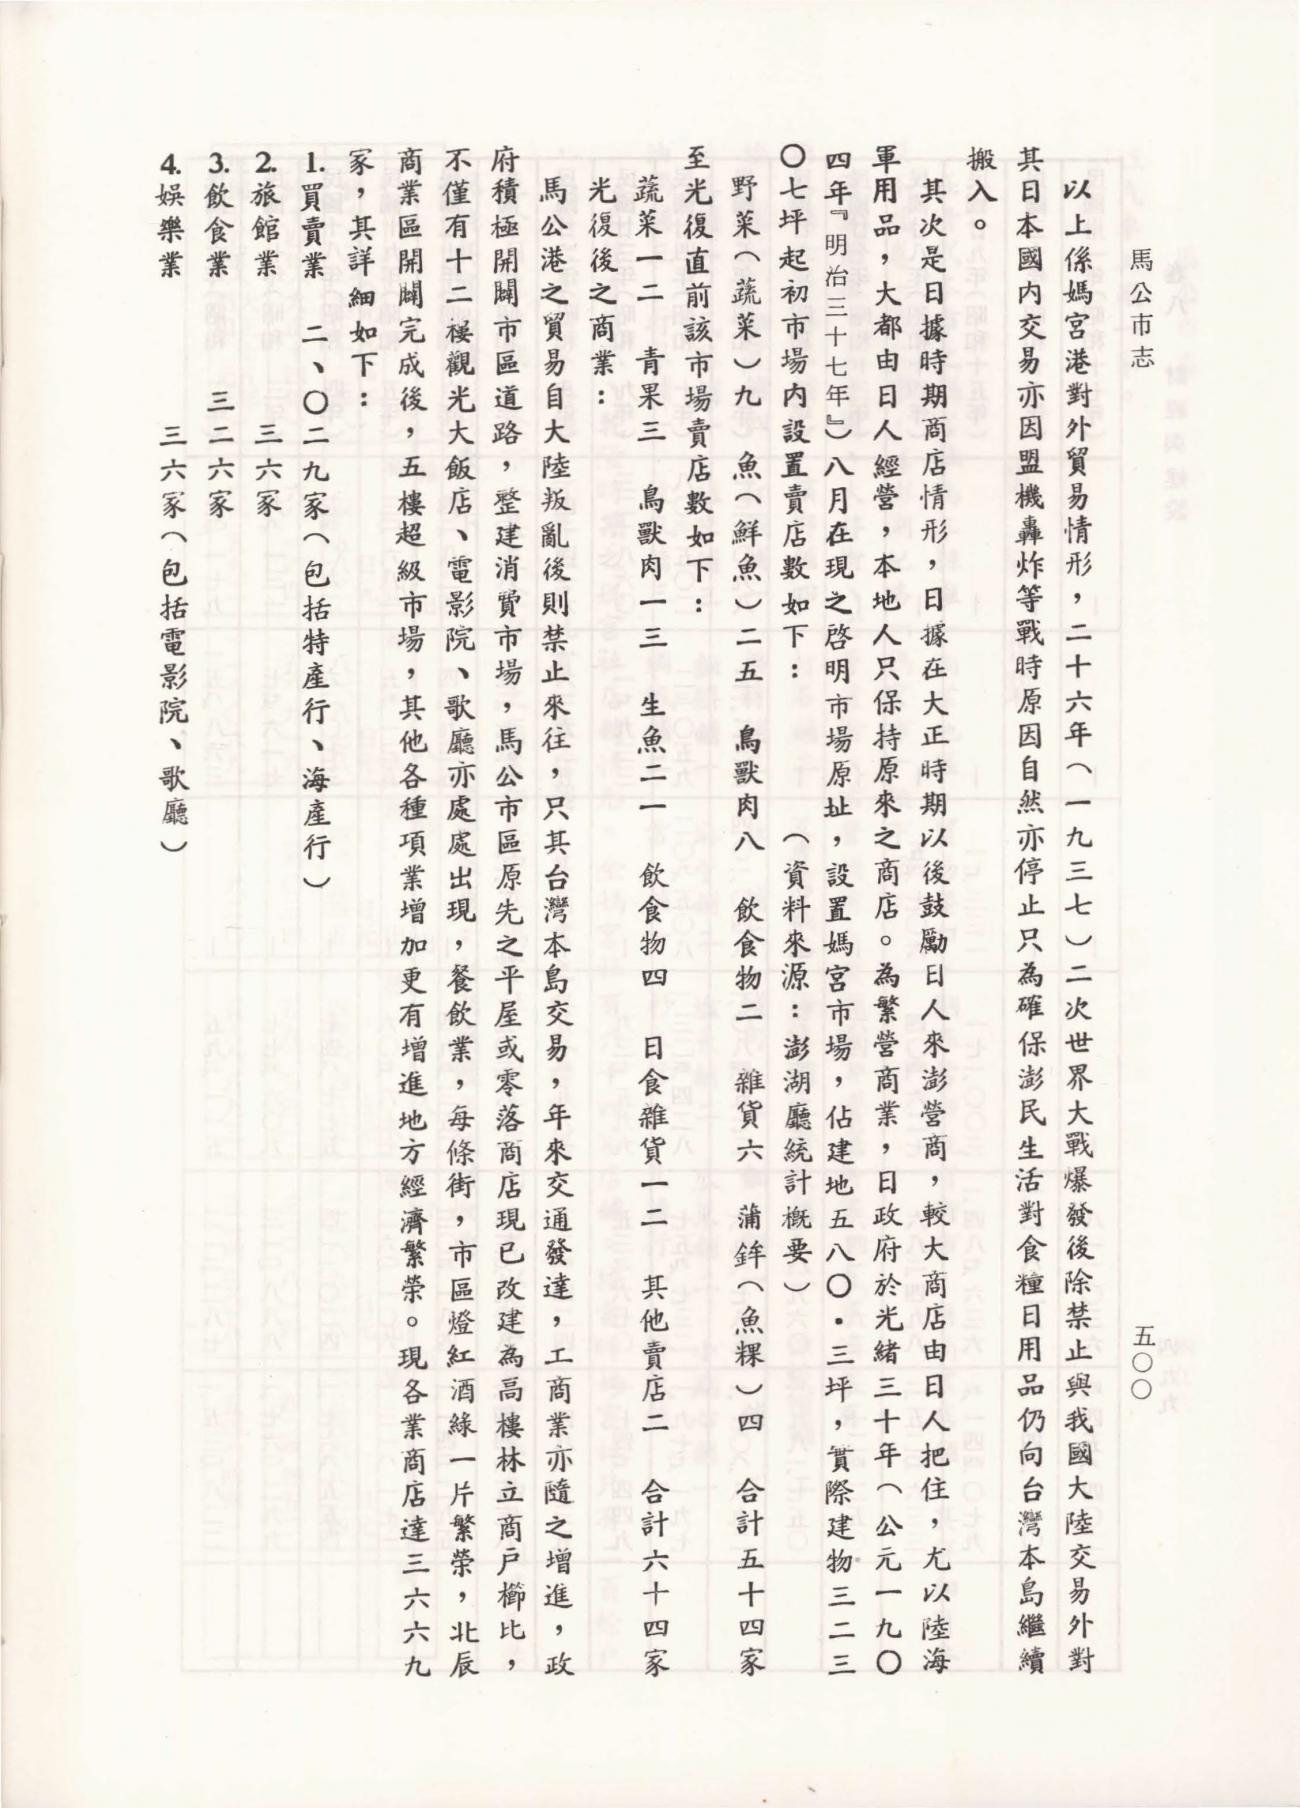 馬公市志
五〇〇
以上係媽宮港對外貿易情形，二十六年（一九三七）二次世界大戰爆發後除禁止與我國大陸交易外對
其日本國內交易亦因盟機轟炸等戰時原因自然亦停止只為確保澎民生活對食糧日用品仍向台灣本島繼續
搬入。
其次是日據時期商店情形，日據在大正時期以後鼓勵日人來澎營商，較大商店由日人把住，尤以陸海
軍用品，大都由日人經營，本地人只保持原來之商店。為繁營商業，日政府於光緒三十年（公元一九〇
四年『明治三十七年』）八月在現之啓明市場原址，設置媽宮市場，佔建地五八〇・三坪，實際建物三二三
〇七坪起初市場內設置賣店數如下：　（資料來源：澎湖廳統計概要）
野菜（蔬菜）九　魚（鮮魚）二五　鳥獸肉八　飲食物二　雜貨六　蒲鉾（魚粿）四　合計五十四家
至光復直前該市場賣店數如下：
蔬菜一二　青果三　鳥獸肉一三　生魚二一　飲食物四　日食雜貨一二　其他賣店二　合計六十四家
光復後之商業：
馬公港之貿易自大陸叛亂後則禁止來往，只其台灣本島交易，年來交通發達，工商業亦隨之增進，政
府積極開闢市區道路，整建消費市場，馬公市區原先之平屋或零落商店現已改建為高樓林立商戶櫛比，
不僅有十二樓觀光大飯店、電影院、歌廳亦處處出現，餐飲業，每條街，市區燈紅酒綠一片繁榮，北辰
商業區開闢完成後，五樓超級市場，其他各種項業增加更有增進地方經濟繁榮。現各業商店達三六六九
家，其詳細如下：
1.買賣業　二、〇二九家（包括特產行、海產行）
2.旅館業　三六家
3.飲食業　三二六家
4.娛樂業　三六家（包括電影院、歌廳）